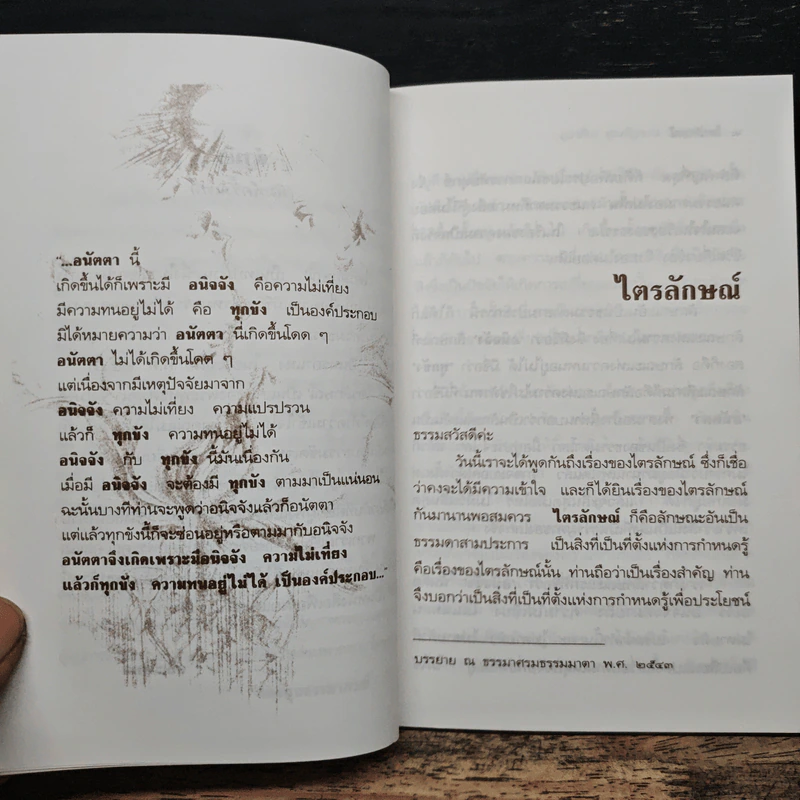 "...อนัตตา นี้
เกิดขึ้นได้ก็เพราะมี อนิจจัง คือความไม่เที่ยง
มีความทนอยู่ไม่ได้ คือ ทุกขัง เป็นองค์ประกอบ
มิได้หมายความว่า อนัตตา นี้เกิดขึ้นโดด ๆ
อนัตตา ไม่ได้เกิดขึ้นโดด ๆ
แต่เนื่องจากมีเหตุปัจจัยมาจาก
อนิจจัง ความไม่เที่ยง ความแปรปรวน
แล้วก็ ทุกขัง ความทนอยู่ไม่ได้
อนิจจัง กับ ทุกขัง นี้มันเนื่องกัน
เมื่อมี อนิจจัง จะต้องมี ทุกขัง ตามมาเป็นแน่นอน
ฉะนั้นบางทีท่านจะพูดว่าอนิจจังแล้วก็อนัตตา
แต่แล้วทุกขังนี้ก็จะซ่อนอยู่หรือตามมากับอนิจจัง
อนัตตาจึงเกิดเพราะมีอนิจจัง ความไม่เที่ยง
แล้วก็ทุกขัง ความทนอยู่ไม่ได้ เป็นองค์ประกอบ..."
ไตรลักษณ์
ธรรมสวัสดีค่ะ
วันนี้เราจะได้พูดกันถึงเรื่องของไตรลักษณ์ ซึ่งก็เชื่อ
ว่าคงจะได้มีความเข้าใจ และก็ได้ยินเรื่องของไตรลักษณ์
กันมานานพอสมควร ไตรลักษณ์ ก็คือลักษณะอันเป็น
ธรรมดาสามประการ เป็นสิ่งที่เป็นที่ตั้งแห่งการกำหนดรู้
คือเรื่องของไตรลักษณ์นั้น ท่านถือว่าเป็นเรื่องสำคัญ ท่าน
จึงบอกว่าเป็นสิ่งที่เป็นที่ตั้งแห่งการกำหนดรู้เพื่อประโยชน์
บรรยาย ณ ธรรมาศรมธรรมมาตา พ.ศ. ๒๕๔๓